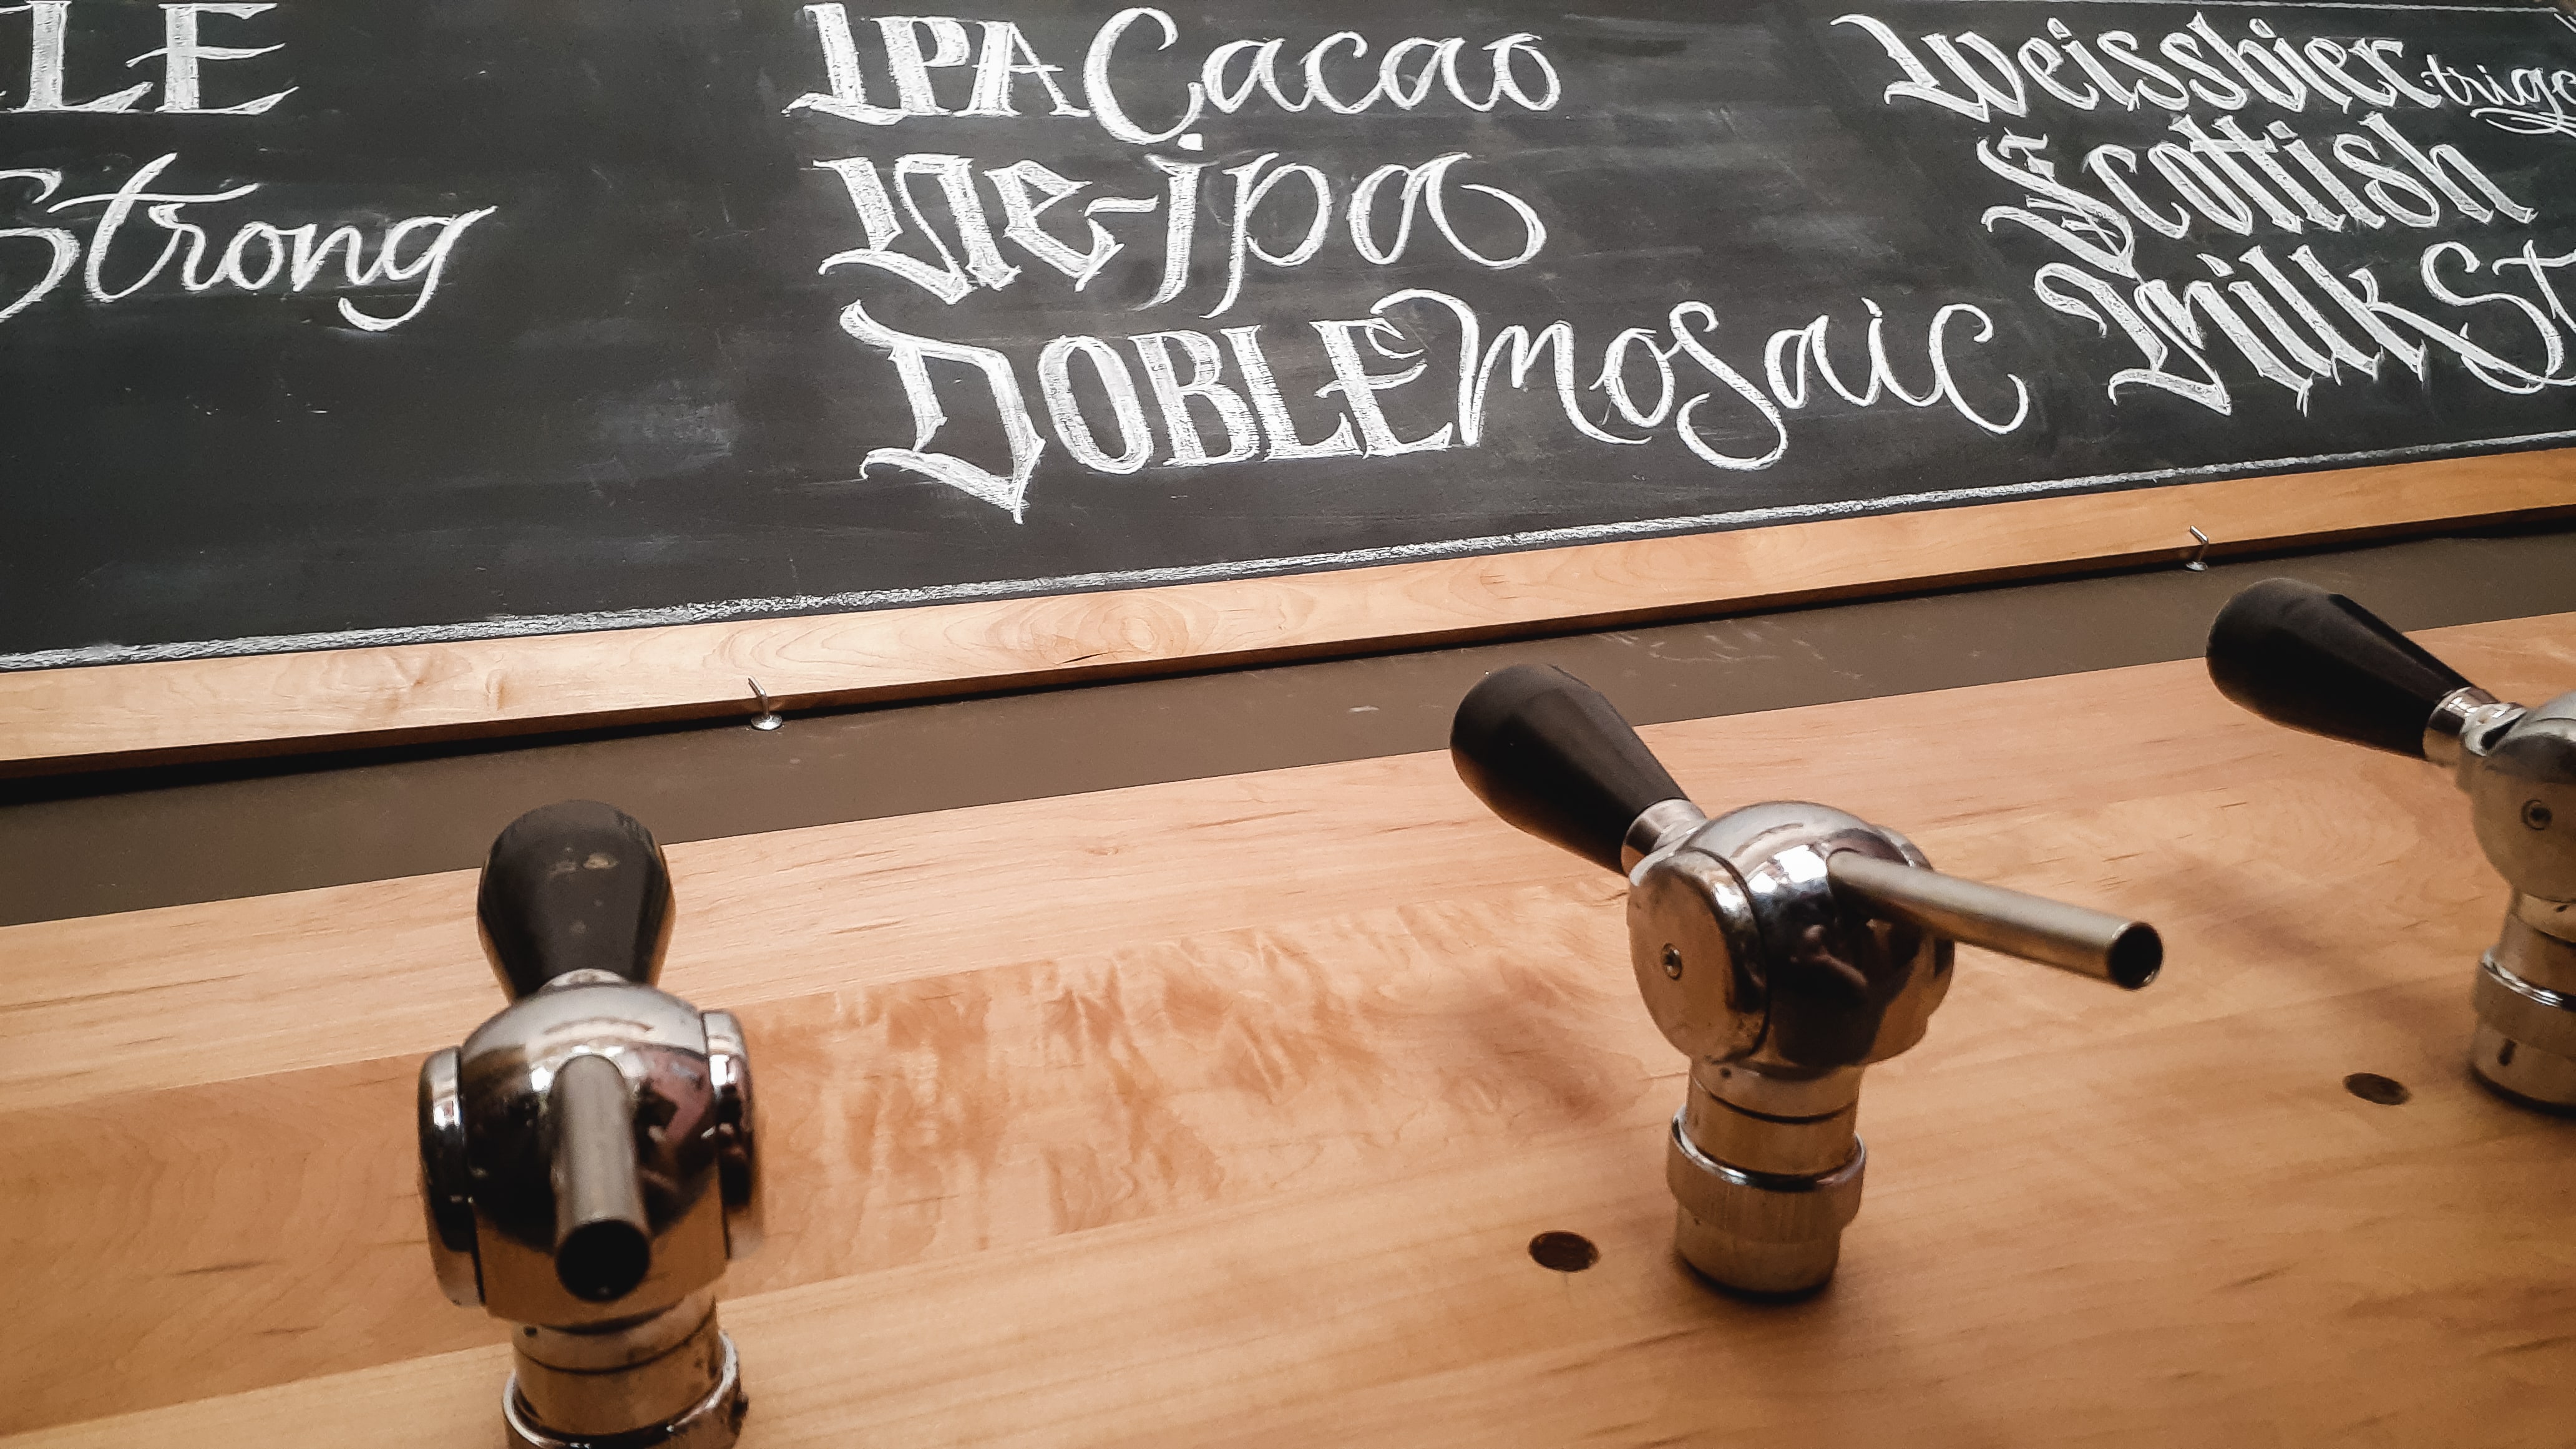 LE
Strong
IPA Cacao
Ne-ipa
DOBLE Mosaic
Weissbier trigo
Scottish
Milk ST